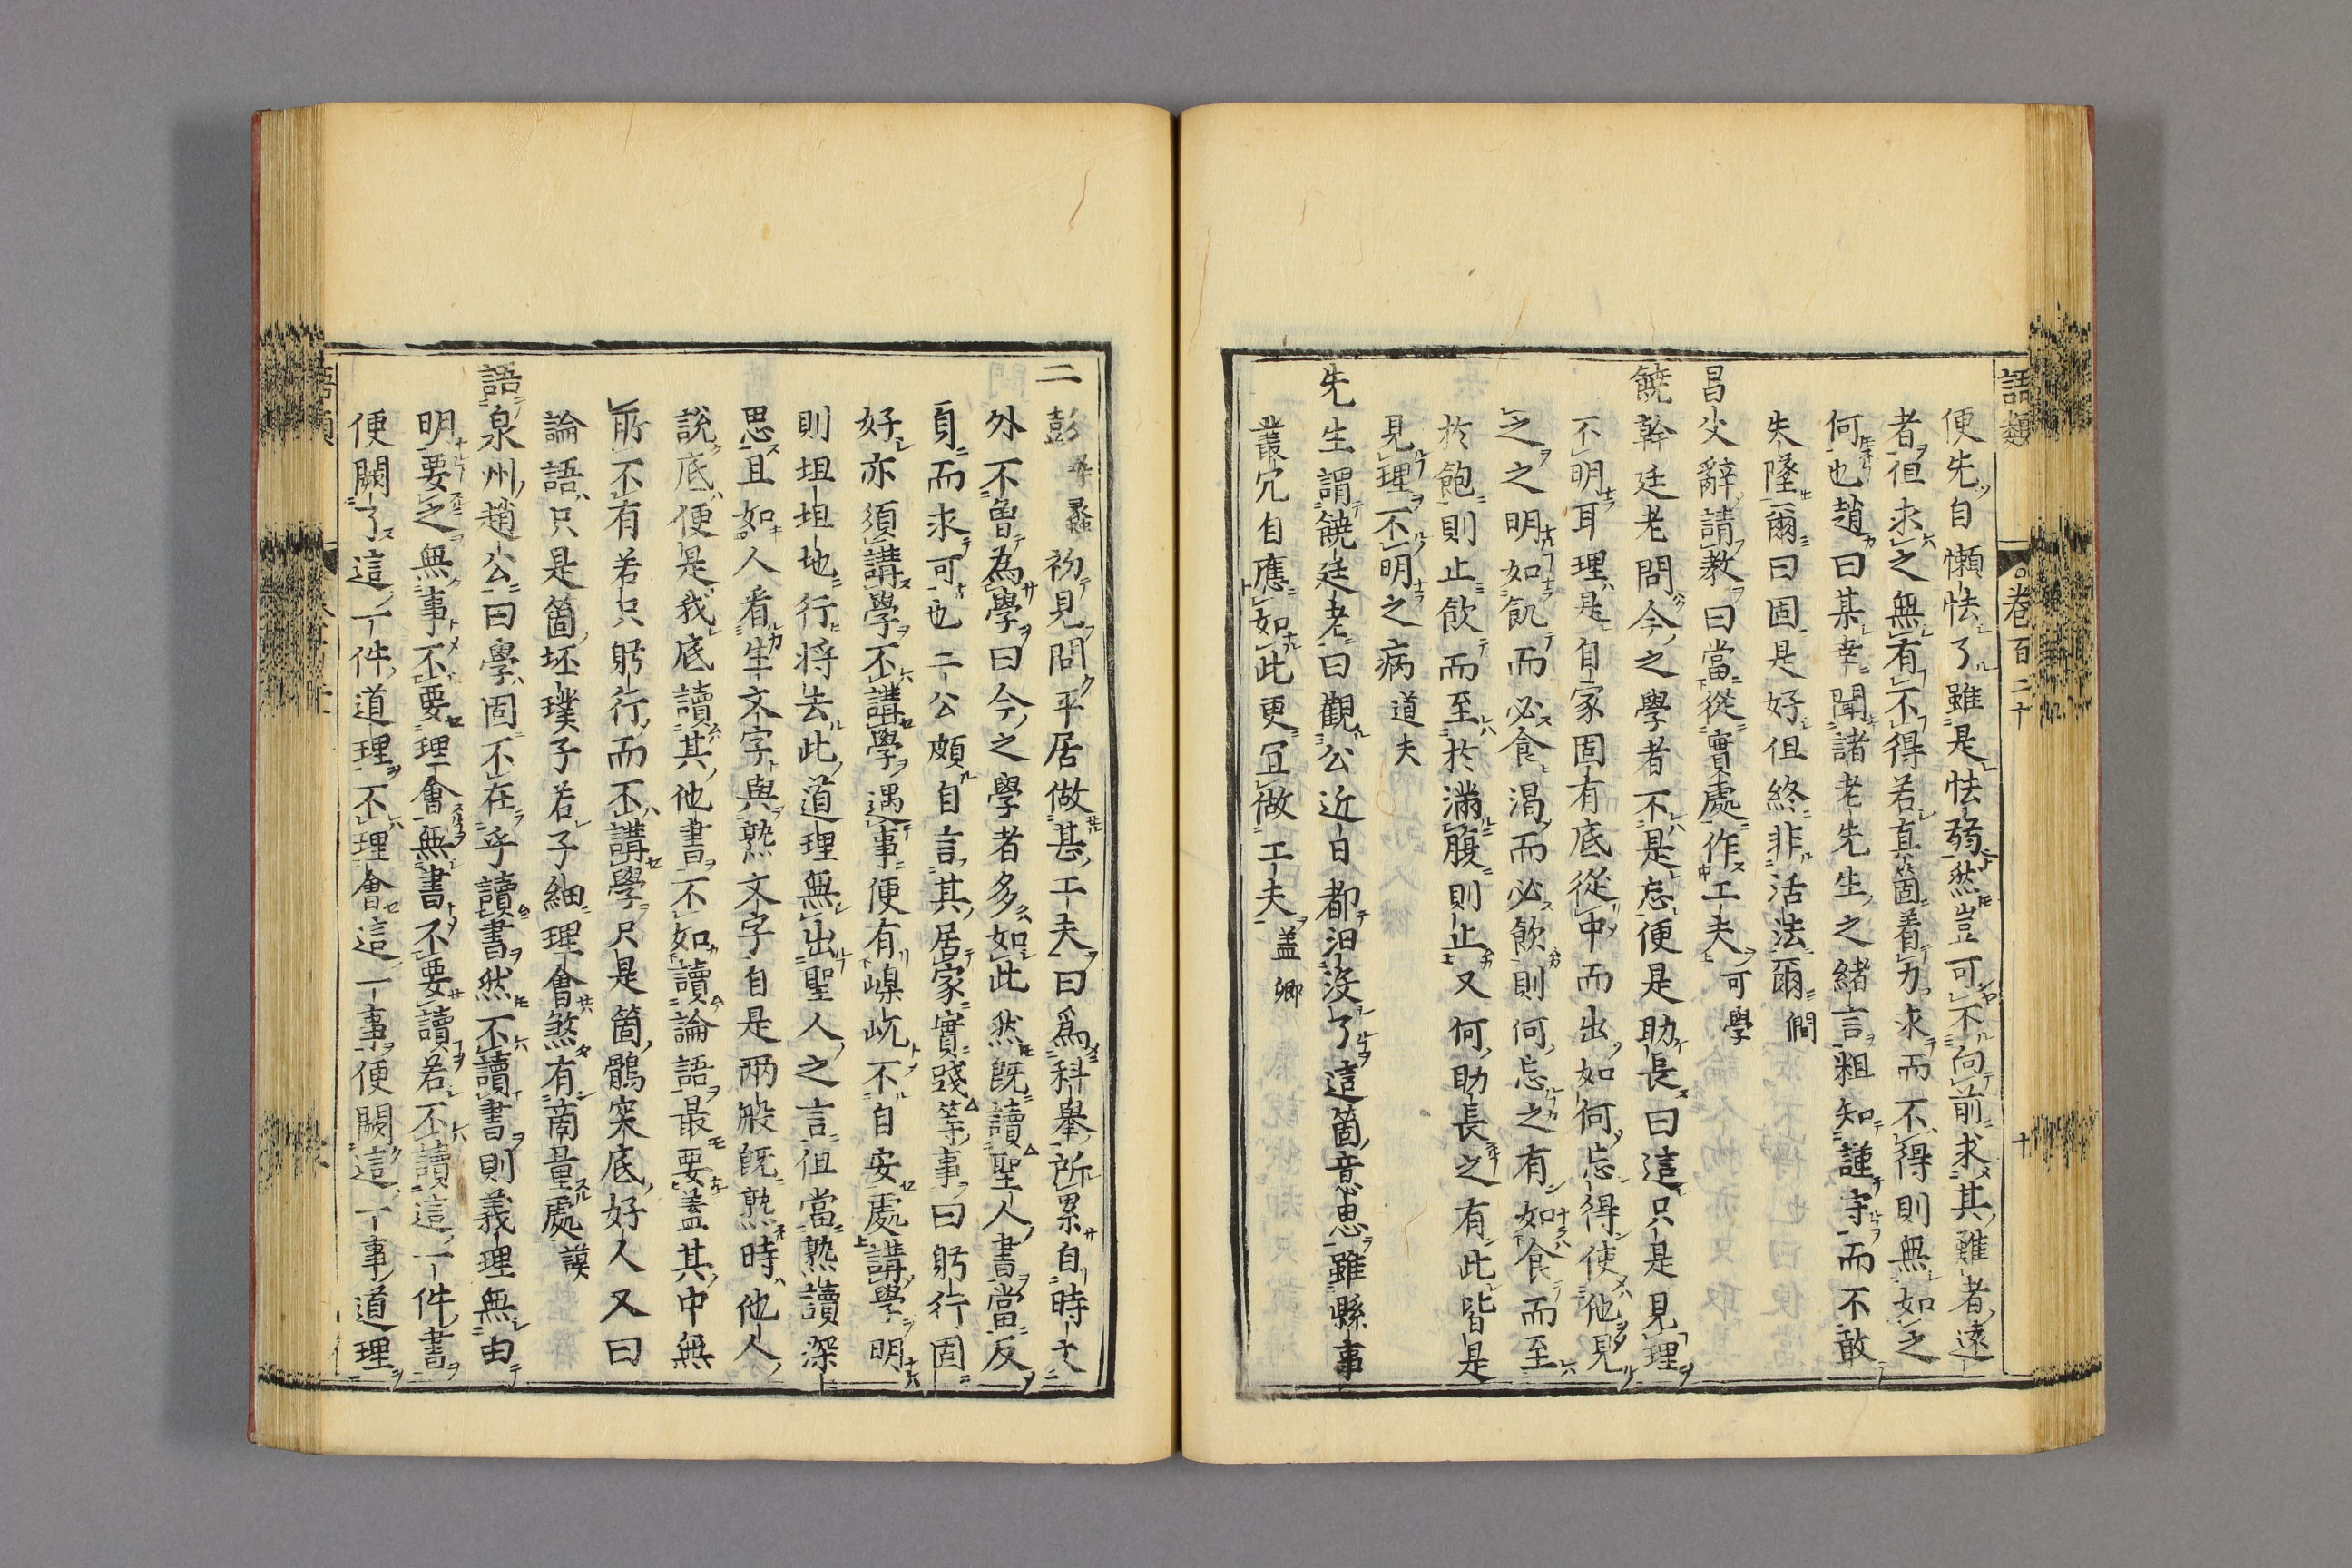 語類
卷百二十
十
便先自懶怯了雖是怯弱然豈可不向前求其難者遠
者但求之無有不得若真箇着力求而不得則無如之
何也趙曰某幸聞諸老先生之緒言粗知謹守而不敢
失墜爾曰固是好但終非活法爾 僩
昌父辭請教曰當從實處作工夫 可學
饒幹廷老問今之學者不是忘便是助長曰這只是見理
不明耳理是自家固有底從中而出如何忘得使他見
之之明如飢而必食渴而必飲則何忘之有如食而至
於飽則止飲而至於滿腹則止又何助長之有此皆是
見理不明之病 道夫
先生謂饒廷老曰觀公近日都汩沒了這箇意思雖縣事
叢冗自應如此更宜做工夫 蓋卿
二彭 尋蠡 初見問平居做甚工夫曰為科舉所累自時文
外不曾為學曰今之學者多如此然既讀聖人書當反
身而求可也二公頗自言其居家實踐等事曰躬行固
好亦須講學不講學遇事便有嵲屼不自安處講學明
則坦坦地行將去此道理無出聖人之言徂當熟讀深
思且如人看生文字與熟文字自是兩般既熟時他人
說底便是我底讀其他書不如讀論語最要蓋其中無
所不有若只躬行而不講學只是箇鶻突底好人又曰
論語只是箇坯璞子若子細理會煞有商量處 謨
語泉州趙公曰學固不在乎讀書然不讀書則義理無由
明要之無事不要理會無書不要讀若不讀這一件書
便闕了這一件道理不理會這一事便闕這一事道理
語類